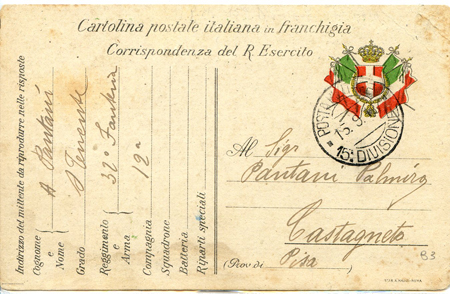 Cartolina postale italiana in franchigia
Corrispondenza del R. Esercito
Indirizzo del mittente da riprodurre nelle risposte
Cognome e Nome
A Pantani
Grado
S Tenente
Reggimento e Arma
32° Fanteria
Compagnia
12a
Squadrone
Batteria
Riparti speciali
POSTA
15ª DIVISIONE
Al Sigr
Pantani Palmiro
Castagneto
(Prov di Pisa)
B3